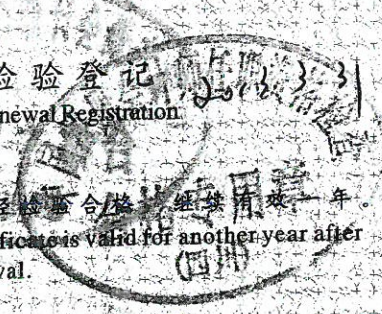 检验登记
newal Registration
2013 3 31
经检验合格，继续有效一年。
ficate is valid for another year after
val.